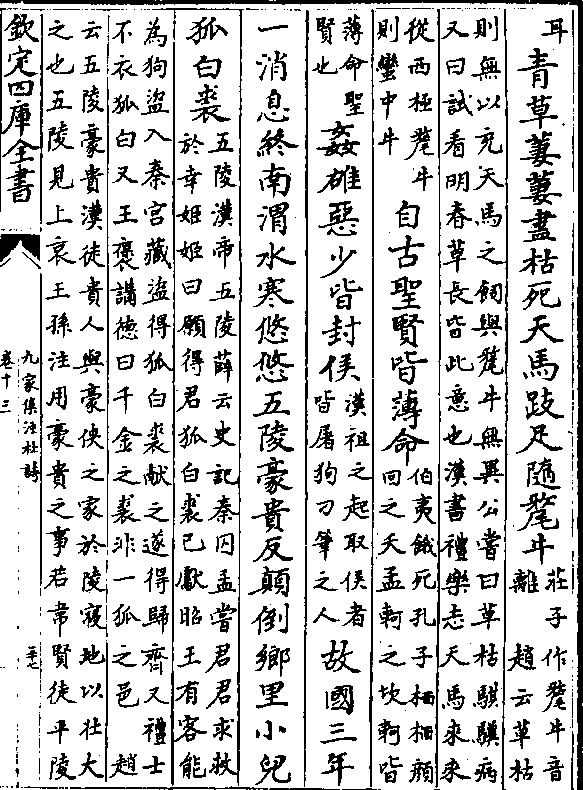 耳青草萋萋盡枯死天馬跂足隨氂牛莊子作氂牛音
離趙云草枯
則無以充天馬之飼與氂牛無異公嘗曰草枯騏驥病
又曰試看明春草長皆此意也漢書禮樂志天馬來來
從西極氂牛
則蠻中牛自古聖賢皆薄命伯夷餓死孔子栖栖顏
回之夭孟軻之坎軻皆
薄命聖
賢也姦雄惡少皆封侯漢祖之起取侯者
皆屠狗刀筆之人故國三年
一消息終南渭水寒悠悠五陵豪貴反顛倒鄉里小兒
狐白裘五陵漢帝五陵薛云史記秦囚孟嘗君君求救
於幸姬姬曰願得君狐白裘已獻昭王有客能
為狗盜入秦宮藏盜得狐白裘獻之遂得歸齊又禮士
不衣狐白又王褒講德曰千金之裘非一狐之邑趙
云五陵豪貴漢徒貴人與豪俠之家於陵寢地以壯大
之也五陵見上哀王孫注用豪貴之事若韋賢徒平陵
欽定四庫全書
九家集注杜詩
卷十三
三七